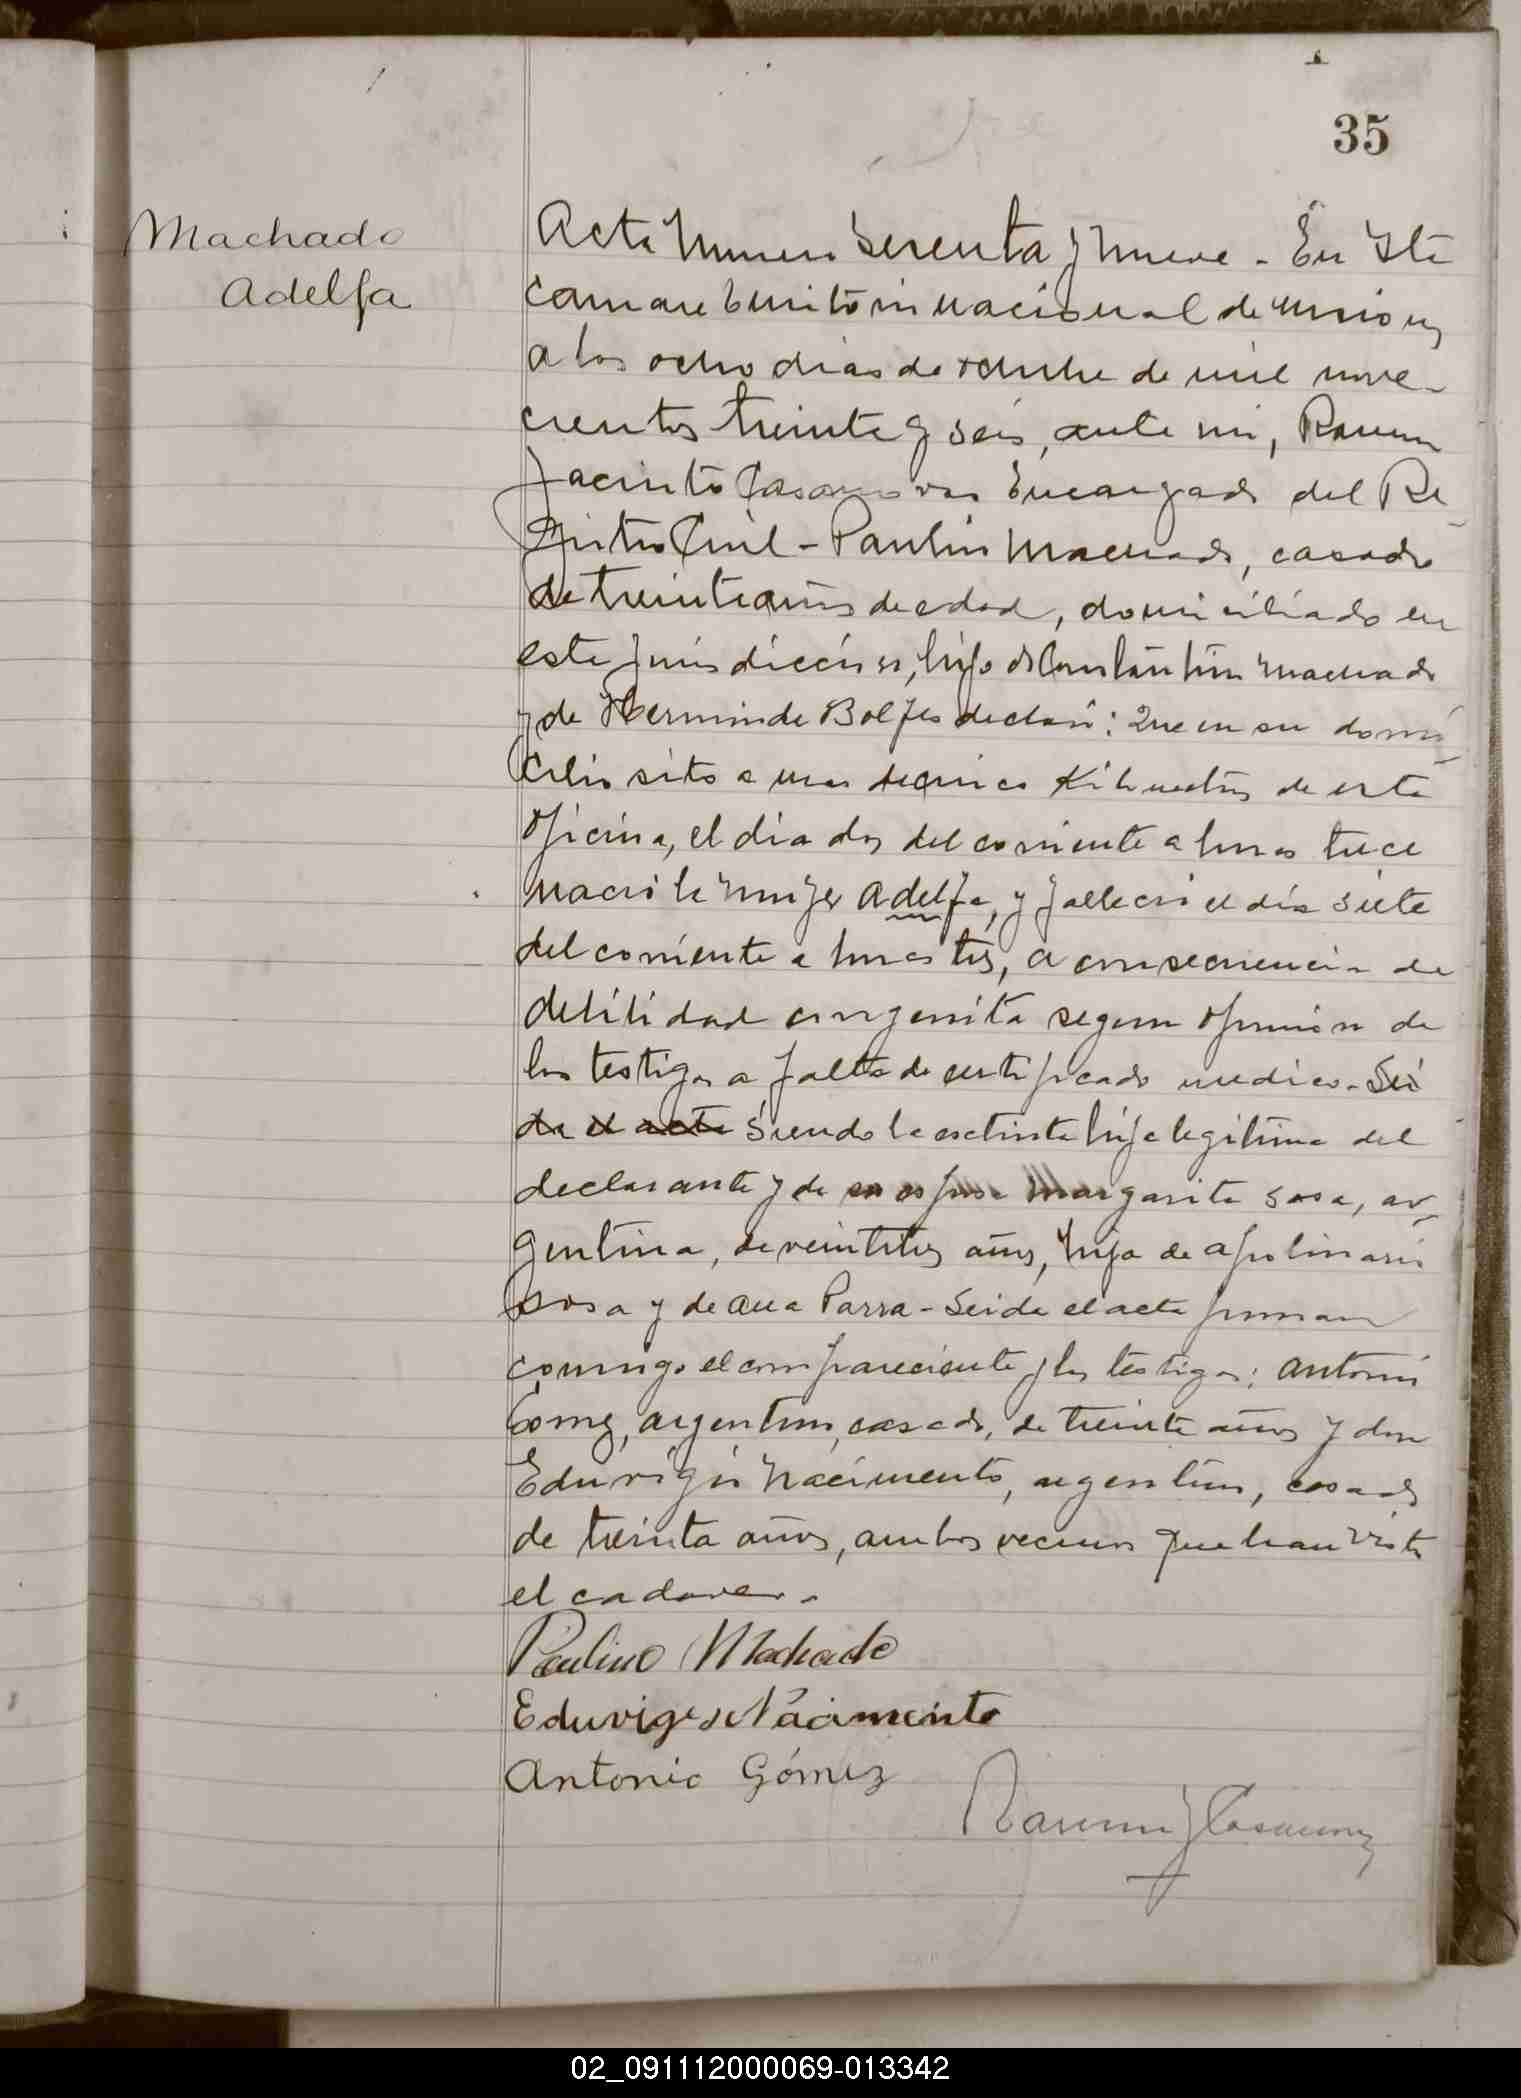 35
Machado
Adelfa
Acta Numero Sesenta y nueve - En Ita
caruare territorio nacional de Misiones
a los ocho dias de octubre de mil nove-
cientos treinta y seis, ante mi, Ramon
Jacinto Casanovas Encargado del Re-
gistro Civil - Paulino Machado, casado
de treinta años de edad, domiciliado en
esta jurisdiccion, hijo de Constantino Machado
y de Herminda declaró: Que en su domi-
cilio sito a unos kilometros de esta
oficina, el dia dos del corriente a horas trece
nació la mujer Adelfa, y falleció el día siete
del corriente a horas tres, a consecuencia de
debilidad congenita segun opinión de
los testigos a falta de certificado medico - Lei
da el acta Siendo la extinta hija legitima del
declarante y de su esposa Margarita Sosa, ar-
gentina, de veintitres años, hija de Apolinario
Sosa y de Ana Parra - Leida el acta firman
conmigo el compareciente y los testigos: Antonio
Gomez, argentino, casado, de treinta años y don
Eduvigis Nacimento, argentino, casado
de treinta años, ambos vecinos que han visto
el cadaver.
Paulino Machado
Eduviges Nacimento
Antonio Gómez
Ramon J Casanovas
02_091112000069-013342